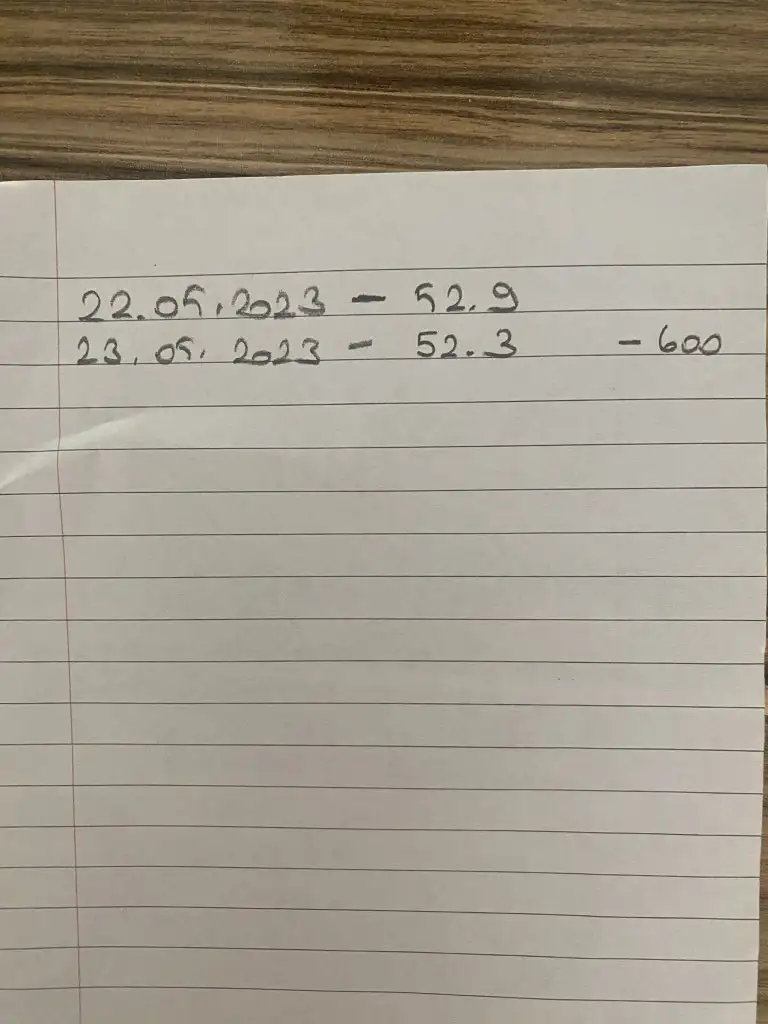 22.05.2023 - 52.9
23.05.2023 - 52.3 - 600